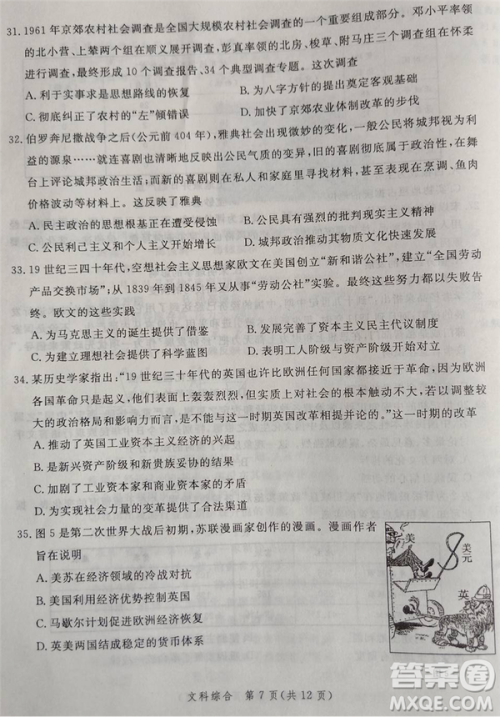 31. 1961年京郊农村社会调查是全国大规模农村社会调查的一个重要组成部分。邓小平率领
的北小营、上辇两个组在顺义展开调查，彭真率领的北房、梭草、附马庄三个组在怀柔
进行调查，最终形成10个调查报告、34个典型调查专题。这次调查
A. 利于实事求是思想路线的恢复
B. 为八字方针的提出奠定客观基础
C. 彻底纠正了农村的“左”倾错误
D. 推动了京郊农业体制改革的步伐
32. 伯罗奔尼撒战争之后(公元前404年)，雅典社会出现微妙的变化，一般公民将城邦视为利
益的源泉……就连喜剧也清晰地反映出公民气质的变异，早期的喜剧倾向于在公共舞
台上评论城邦政治，而后来的喜剧在私人和家庭里寻求材料，甚至在烹饪、宠臣、鱼肉
价格波动等方面挖掘材料。这反映了雅典
A. 民主政治的思想根基正在遭受侵蚀
B. 公民具有强烈的批判现实主义精神
C. 公民利己主义和个人主义开始增长
D. 城邦政治推动大众文化快速发展
33. 19世纪三四十年代，空想社会主义思想家欧文在美国创立“新和谐公社”，建立“全国劳动
产品交换市场”；从1839年到1845年又从事“劳动公社”实验。最终这些努力都以失败告
终。欧文的这些实践
A. 为马克思主义的诞生提供了借鉴
B. 发展完善了资本主义民主代议制
C. 为建立理想社会提供了科学蓝图
D. 表明工人与资产阶级开始对立
34. 某历史学家指出：“19世纪三十年代的英国也许比欧洲任何国家都接近于革命，因为欧洲
各国革命只是起义，他们表面上轰轰烈烈，但实质内容很少；而英国革命若发生，则将是较
大的政治格局和力量改变，若不改革，则真正的革命将不可避免”。这一时期的改革
A. 推动了英国工业资本主义经济的兴起
B. 是新兴资产阶级和新贵族妥协的结果
C. 加剧了工业资本家和商业资本家的矛盾
D. 为工业资本家实现政治主张提供了合法渠道
35. 图5是第二次世界大战后初期，苏联漫画家创作的漫画。漫画作者
旨在说明
A. 美苏在经济领域的冷战对抗
B. 美国利用经济优势控制英国
C. 马歇尔计划促进欧洲经济恢复
D. 英美两国结成稳定的货币体系
美
美元
英
文科综合 第7页(共12页)
答案圈